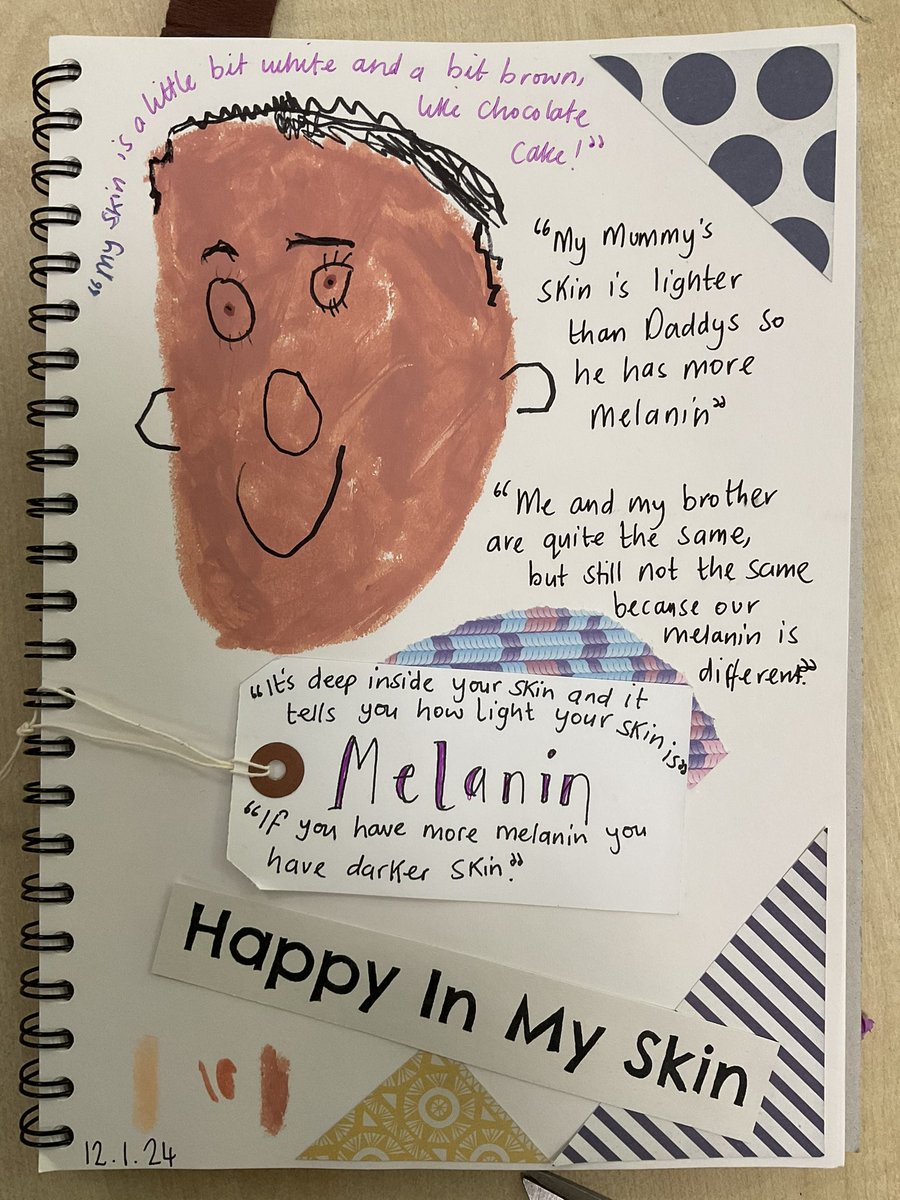 “My skin is a little bit white and a bit brown,
like chocolate
cake!”
“My Mummy's
skin is lighter
than Daddys so
he has more
melanin”
“Me and my brother
are quite the same,
but still not the same
because our
melanin is
different.”
“It's deep inside your skin and it
tells you how light your skin is”
Melanin
“If you have more melanin you
have darker skin.”
Happy In My Skin
12.1.24